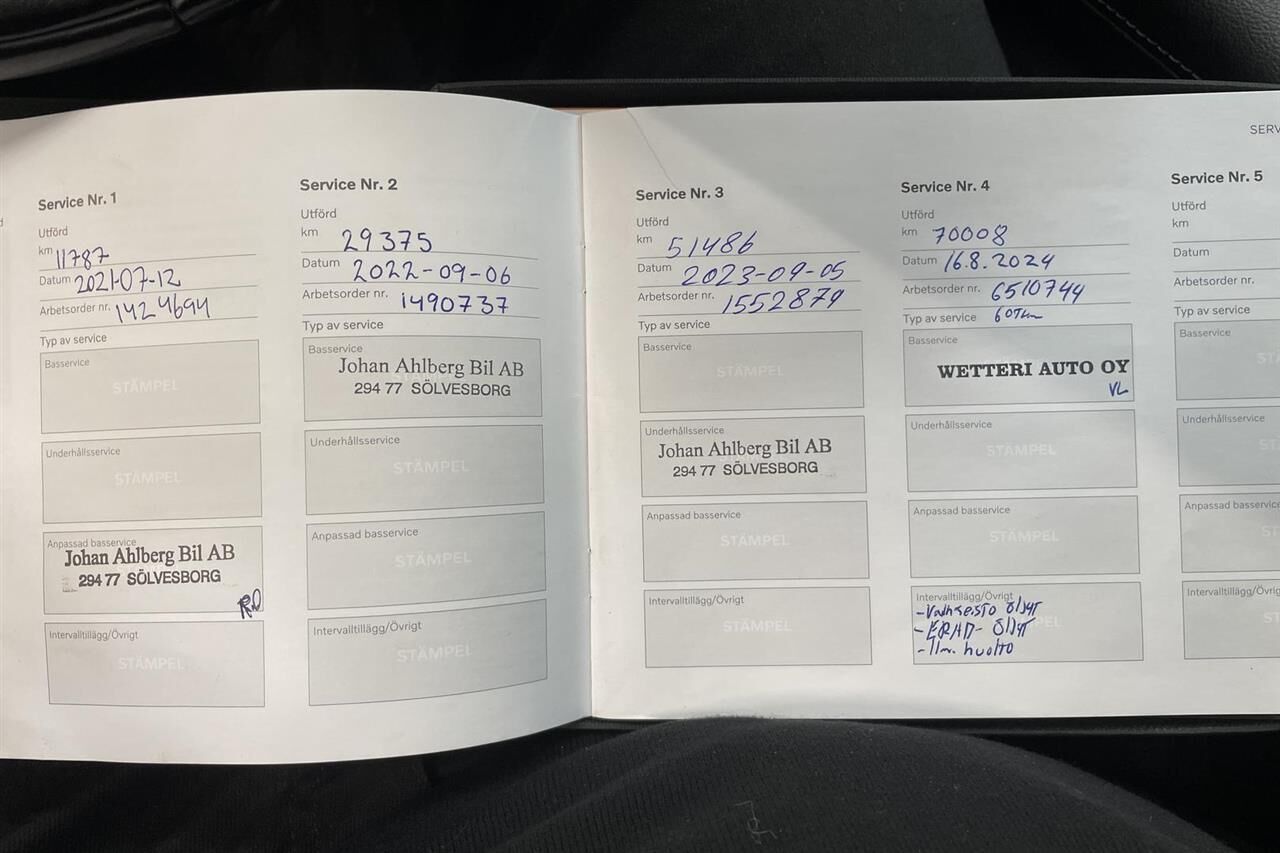 SERV
Service Nr. 1
Utförd
km 11787
Datum 2021-07-12
Arbetsorder nr. 1424694
Typ av service
Basservice
STÄMPEL
Underhållsservice
STÄMPEL
Anpassad basservice
Johan Ahlberg Bil AB
294 77 SÖLVESBORG
Intervalltillägg/Övrigt
STÄMPEL
Service Nr. 2
Utförd
km 29375
Datum 2022-09-06
Arbetsorder nr. 1490737
Typ av service
Basservice
Johan Ahlberg Bil AB
294 77 SÖLVESBORG
Underhållsservice
STÄMPEL
Anpassad basservice
STÄMPEL
Intervalltillägg/Övrigt
STÄMPEL
Service Nr. 3
Utförd
km 51486
Datum 2023-09-05
Arbetsorder nr. 1552879
Typ av service
Basservice
STÄMPEL
Underhållsservice
Johan Ahlberg Bil AB
294 77 SÖLVESBORG
Anpassad basservice
STÄMPEL
Intervalltillägg/Övrigt
STÄMPEL
Service Nr. 4
Utförd
km 70008
Datum 16.8.2024
Arbetsorder nr. 6510744
Typ av service 60Tkm
Basservice
WETTERI AUTO OY
VL
Underhållsservice
STÄMPEL
Anpassad basservice
STÄMPEL
Intervalltillägg/Övrigt
- Vaihteisto öljyt
- ERAD- öljyt
- Ilm. huolto
Service Nr. 5
Utförd
km
Datum
Arbetsorder nr.
Typ av service
Basservice
ST
Underhållsservice
ST
Anpassad basservice
ST
Intervalltillägg/Övrigt
ST